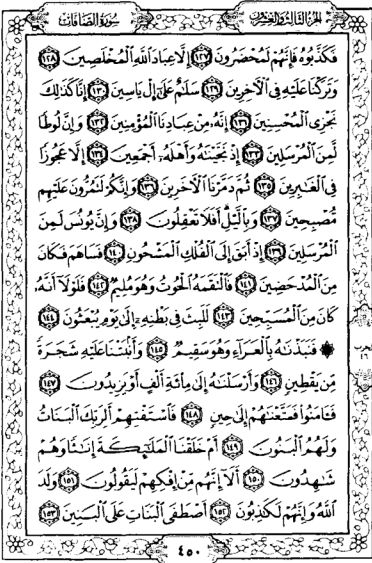 الجزء الثالث والعشرون
سورة الصافات
فَكَذَّبُوهُ فَإِنَّهُمْ لَمُحْضَرُونَ ١٢٧ إِلَّا عِبَادَ اللَّهِ الْمُخْلَصِينَ ١٢٨
وَتَرَكْنَا عَلَيْهِ فِي الْآخِرِينَ ١٢٩ سَلَامٌ عَلَىٰ إِلْ يَاسِينَ ١٣٠ إِنَّا كَذَٰلِكَ
نَجْزِي الْمُحْسِنِينَ ١٣١ إِنَّهُ مِنْ عِبَادِنَا الْمُؤْمِنِينَ ١٣٢ وَإِنَّ لُوطًا
لَمِنَ الْمُرْسَلِينَ ١٣٣ إِذْ نَجَّيْنَاهُ وَأَهْلَهُ أَجْمَعِينَ ١٣٤ إِلَّا عَجُوزًا
فِي الْغَابِرِينَ ١٣٥ ثُمَّ دَمَّرْنَا الْآخَرِينَ ١٣٦ وَإِنَّكُمْ لَتَمُرُّونَ عَلَيْهِم
مُّصْبِحِينَ ١٣٧ وَبِاللَّيْلِ أَفَلَا تَعْقِلُونَ ١٣٨ وَإِنَّ يُونُسَ لَمِنَ
الْمُرْسَلِينَ ١٣٩ إِذْ أَبَقَ إِلَى الْفُلْكِ الْمَشْحُونِ ١٤٠ فَسَاهَمَ فَكَانَ
مِنَ الْمُدْحَضِينَ ١٤١ فَالْتَقَمَهُ الْحُوتُ وَهُوَ مُلِيمٌ ١٤٢ فَلَوْلَا أَنَّهُ
كَانَ مِنَ الْمُسَبِّحِينَ ١٤٣ لَلَبِثَ فِي بَطْنِهِ إِلَىٰ يَوْمِ يُبْعَثُونَ ١٤٤
۞ فَنَبَذْنَاهُ بِالْعَرَاءِ وَهُوَ سَقِيمٌ ١٤٥ وَأَنبَتْنَا عَلَيْهِ شَجَرَةً
مِّن يَقْطِينٍ ١٤٦ وَأَرْسَلْنَاهُ إِلَىٰ مِائَةِ أَلْفٍ أَوْ يَزِيدُونَ ١٤٧
فَآمَنُوا فَمَتَّعْنَاهُمْ إِلَىٰ حِينٍ ١٤٨ فَاسْتَفْتِهِمْ أَلِرَبِّكَ الْبَنَاتُ
وَلَهُمُ الْبَنُونَ ١٤٩ أَمْ خَلَقْنَا الْمَلَائِكَةَ إِنَاثًا وَهُمْ
شَاهِدُونَ ١٥٠ أَلَا إِنَّهُم مِّنْ إِفْكِهِمْ لَيَقُولُونَ ١٥١ وَلَدَ
اللَّهُ وَإِنَّهُمْ لَكَاذِبُونَ ١٥٢ أَصْطَفَى الْبَنَاتِ عَلَى الْبَنِينَ ١٥٣
٤٥٠